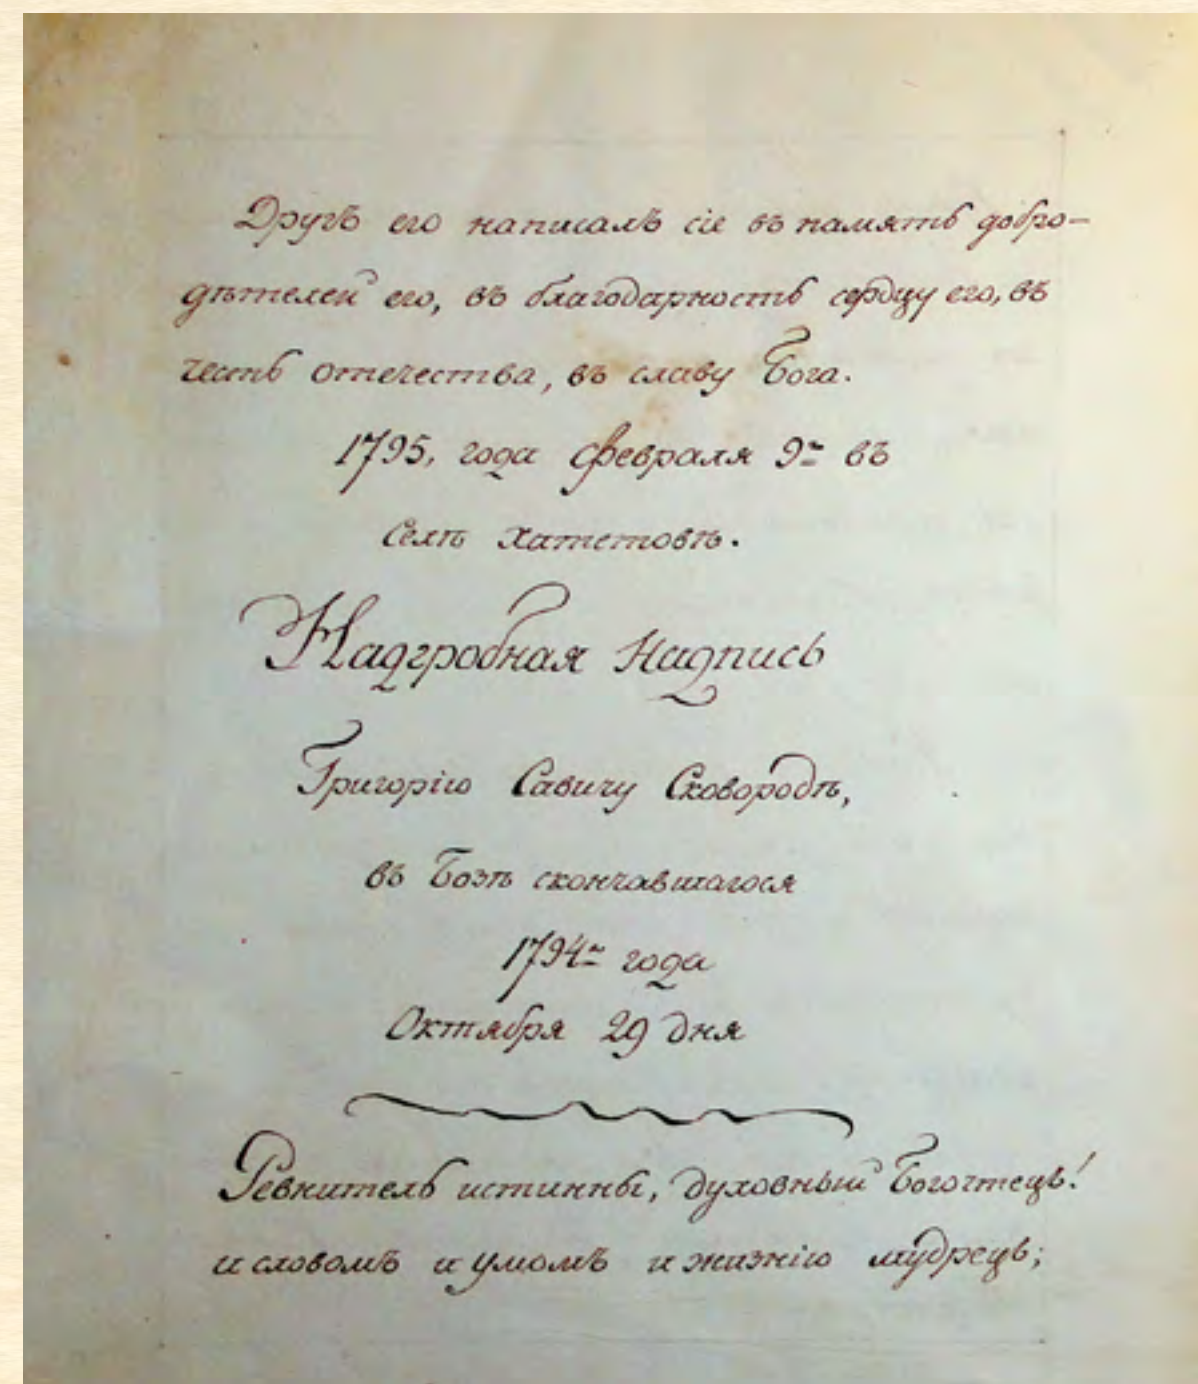 Другъ его написалъ сіе въ память добро-
дѣтелей его, въ благодарность сердцу его, въ
честь отечества, въ славу Бога.
1795, года февраля 9го въ
Селѣ Хатетовѣ.
Надгробная Надпись
Григорію Савичу Сковородѣ,
въ Бозѣ скончавшагося
1794го года
Октября 29 дня
Ревнитель истинны, духовный Богочтецъ!
и словомъ и умомъ и жизнію мудрецъ;